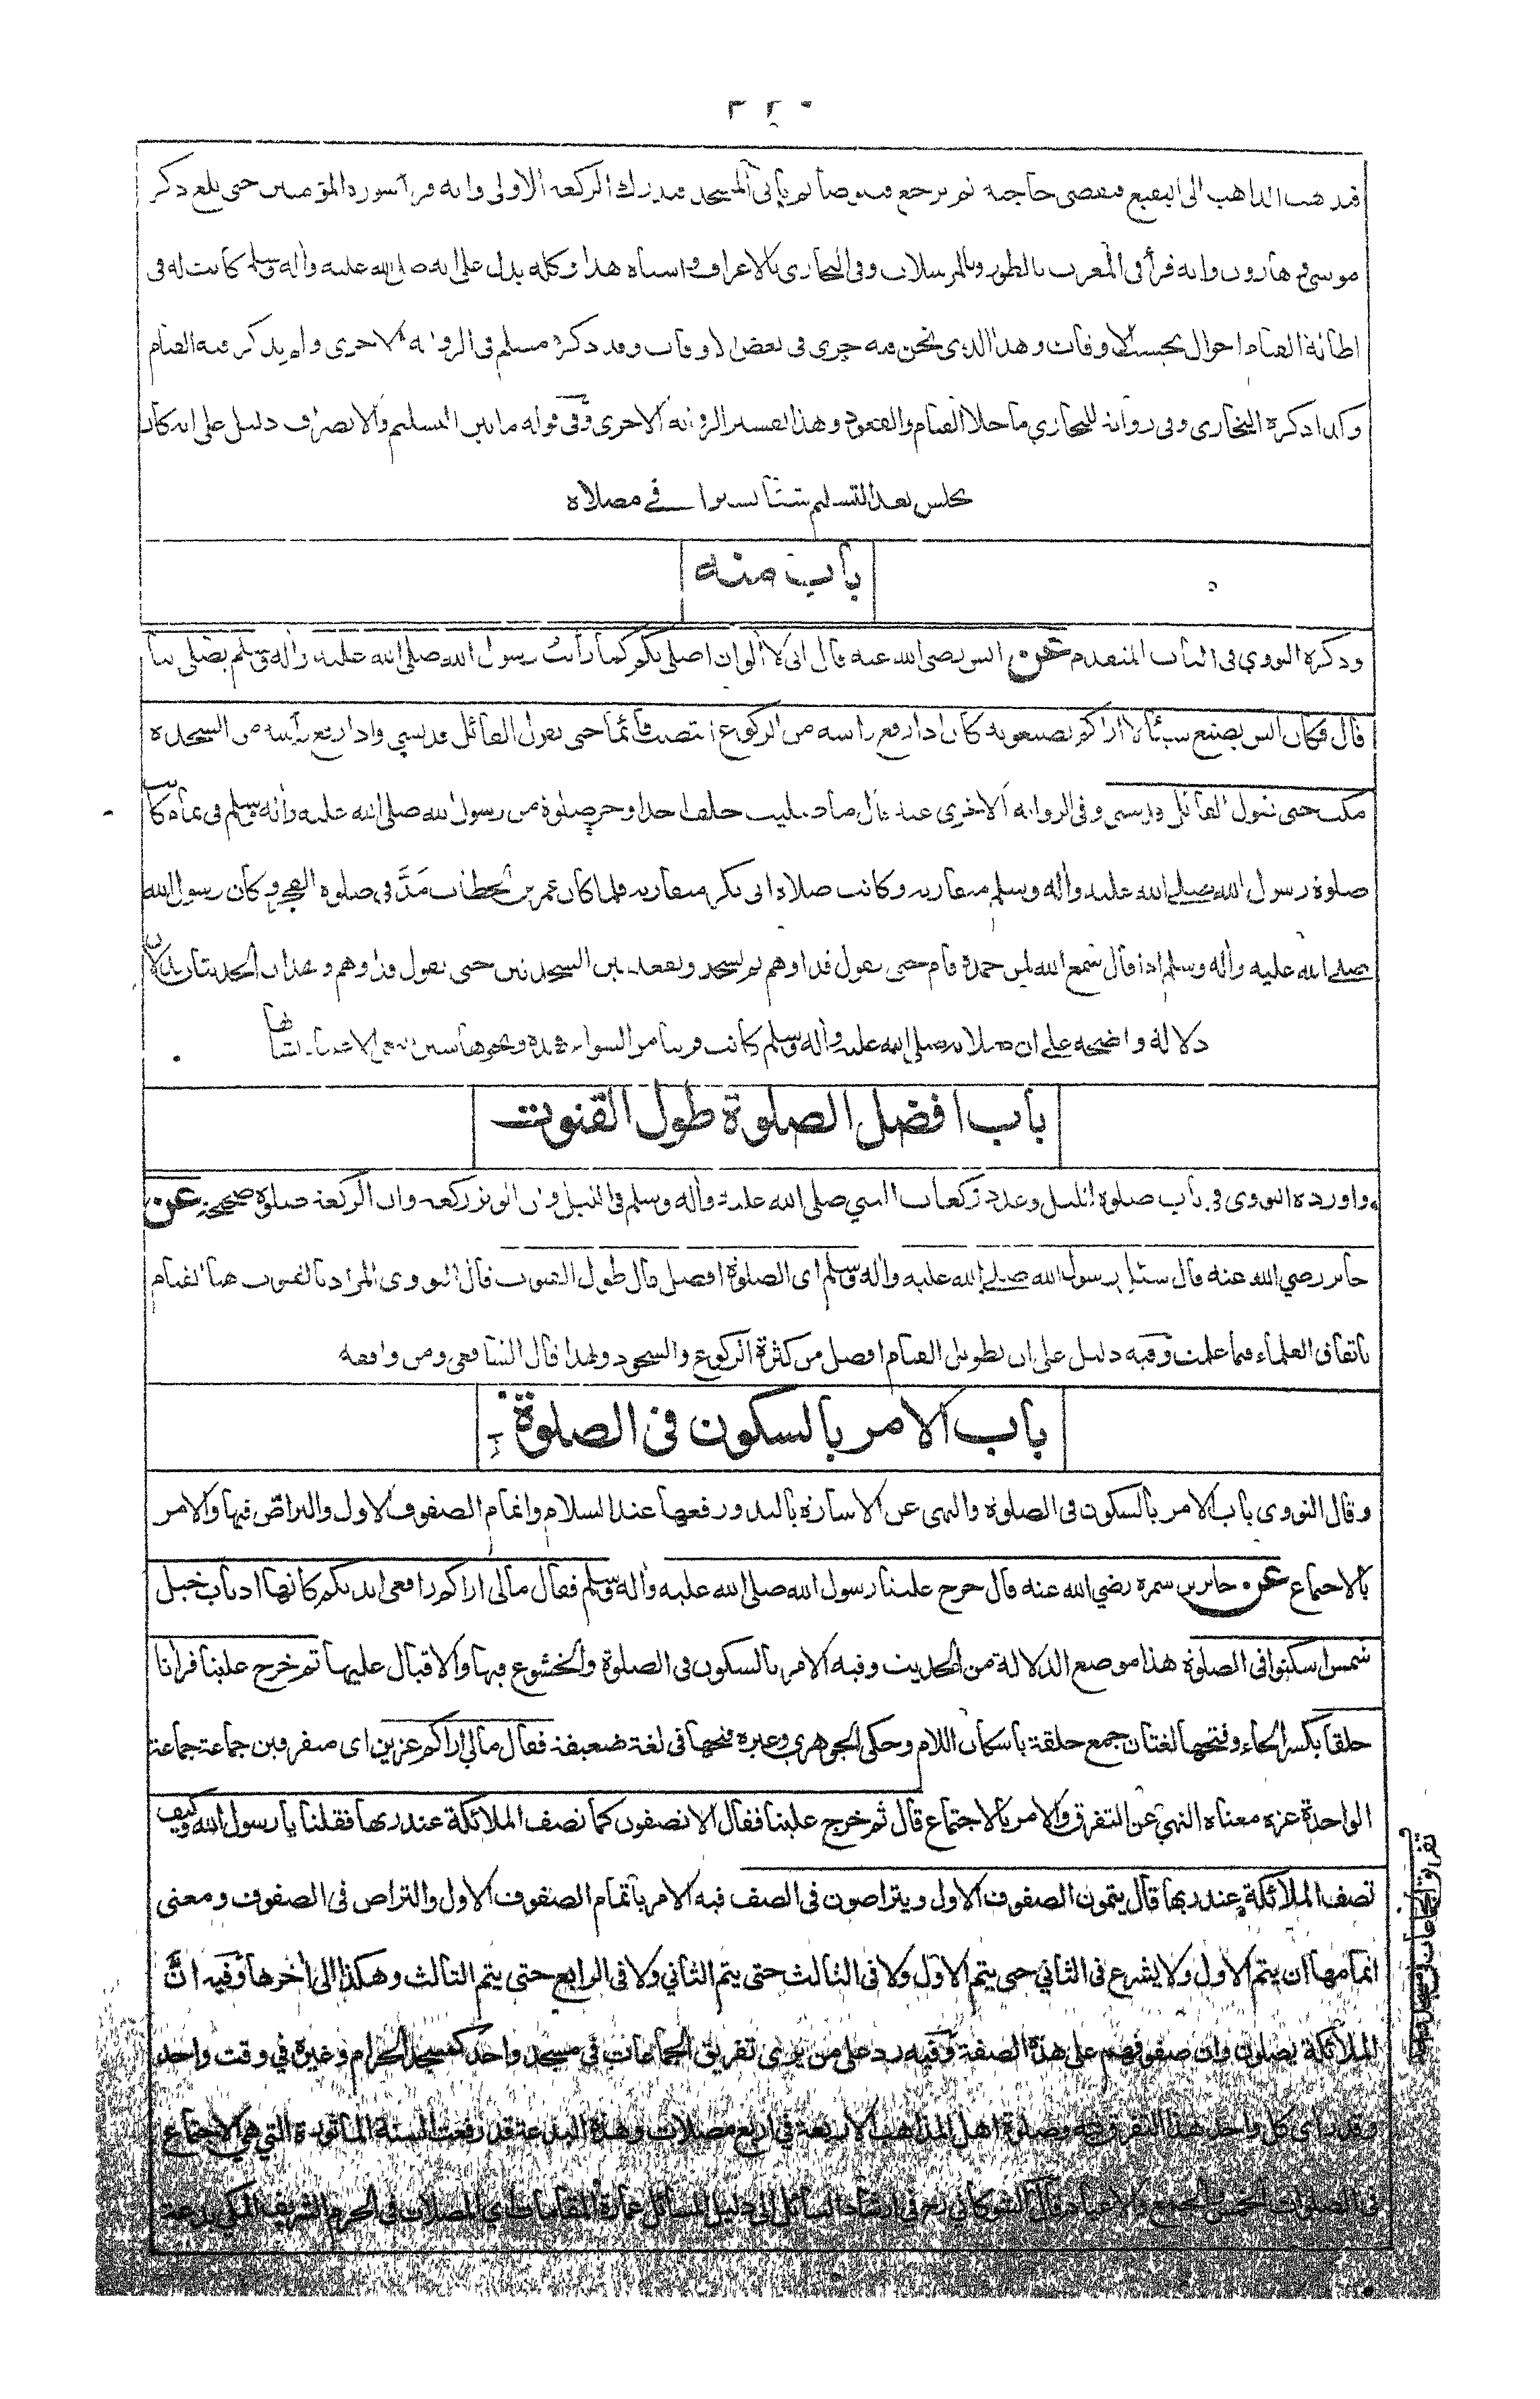 فيذهب الذاهب الى البقيع فيقضى حاجته ثم يرجع فيتوضأ ثم يأتى المسجد فيدرك الركعة الاولى وانه قرأ سورة المؤمنين حتى بلغ ذكر
موسى وهارون وانه قرأ فى المغرب بالطور وبالمرسلات وفى البخارى بالاعراف واشباه هذا وكله يدل على انه صلى الله عليه وأله وسلم كانت له فى
اطالة القيام احوال بحسب الاوقات وهذا الذى نحن فيه جرى فى بعض الاوقات وقد ذكره مسلم فى الرواية الاخرى ولم يذكر فيه القيام
وكذا ذكره البخارى وفى رواية للبخاري ما خلا القيام والقعود وهذا تفسير الرواية الاخرى وفى قوله ما بين التسليم والانصراف دليل على انه كان
يجلس بعد التسليم شيئا يسيرا في مصلاه
باب منه
وذكره النووي فى الباب المتقدم عن انس رضى الله عنه قال انى لا ألوان اصلى بكم كما رأيت رسول الله صلى الله عليه وأله وسلم يصلى بنا
قال فكان انس يصنع شيئا لا اراكم تصنعونه كان اذا رفع راسه من الركوع انتصب قائما حتى يقول القائل قد نسي واذا رفع رأسه من السجدة
مكث حتى يقول القائل قد نسى وفى الرواية الاخرى عنه قال ما صليت خلف احد اوجز صلوة من رسول الله صلى الله عليه وأله وسلم فى تمام كانت
صلوة رسول الله صلى الله عليه وأله وسلم متقاربة وكانت صلاة ابى بكر متقاربة فلما كان عمر بن الخطاب مَدَّ فى صلوة الفجر وكان رسول الله
صلى الله عليه وأله وسلم اذا قال سمع الله لمن حمده قام حتى نقول قد اوهم ثم يسجد ويقعد بين السجدتين حتى نقول قد اوهم وهذان الحديثان يدلان
دلالة واضحة على ان صلاته صلى الله عليه وأله وسلم كانت قريبا من السواء
باب افضل الصلوة طول القنوت
واورده النووى فى باب صلوة الليل وعدد ركعات النبي صلى الله عليه وأله وسلم فى الليل وان الوتر ركعة وان الركعة صلوة صحيحة عن
جابر رضي الله عنه قال سئل رسول الله صلى الله عليه وأله وسلم اى الصلوة افضل قال طول القنوت قال النووى المراد بالقنوت هنا القيام
باتفاق العلماء فيما علمت وفيه دليل على ان تطويل القيام افضل من كثرة الركوع والسجود ولهذا قال الشافعى ومن وافقه
باب الامر بالسكون فى الصلوة
وقال النووى باب الامر بالسكون فى الصلوة والنهى عن الاشارة باليد ورفعها عند السلام واتمام الصفوف الاول والتراصّ فيها والامر
بالاجتماع عن جابر بن سمرة رضي الله عنه قال خرج علينا رسول الله صلى الله عليه وأله وسلم فقال مالى اراكم رافعى ايديكم كانها اذناب خيل
شمس اسكنوا فى الصلوة هذا موضع الدلالة من الحديث وفيه الامر بالسكون فى الصلوة والخشوع فيها والاقبال عليها ثم خرج علينا فرأنا
حلقا بكسر الحاء وفتحها لغتان جمع حلقة باسكان اللام وحكى الجوهرى وغيره فتحها فى لغة ضعيفة فقال مالي اراكم عزين اى متفرقين جماعة جماعة
الواحدة عزة معناه النهي عن التفرق والامر بالاجتماع قال ثم خرج علينا فقال الا تصفون كما تصف الملائكة عند ربها فقلنا يا رسول الله وكيف
تصف الملائكة عند ربها قال يتمون الصفوف الاول ويتراصون فى الصف فيه الامر باتمام الصفوف الاول والتراص فى الصفوف ومعنى
اتمامها ان يتم الاول ولا يشرع فى الثاني حتى يتم الاول ولا فى الثالث حتى يتم الثاني ولا فى الرابع حتى يتم الثالث وهكذا الى أخرها وفيه انّ
الملائكة يصلون وان صفوفهم على هذه الصفة وفيه رد على من يرى تفريق الجماعات في مسجد واحد كمسجد الحرام وغيره في وقت واحد
وقد رأى كل واحد هذا التفرق فيه وصلوة اهل المذاهب الاربعة في اربع مصلات وهذه البدعة قد رفعت السنة المأثورة التي هي الاجتماع
فى الصلوات الخمس والجمع والاعياد قال الشوكاني رح فى ارشاد السائل الى دليل المسائل عمارة المقامات اى المصلات فى الحرم الشريف المكي بدعة